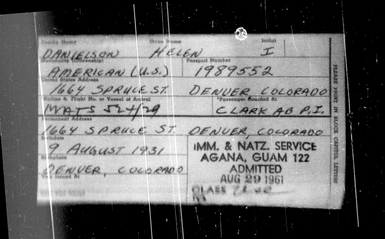 Family Name Given Name Initial
DANIELSON HELEN I
Passport Number
AMERICAN (U.S.) 1989552
United States Address
1664 SPRUCE ST. DENVER COLORADO
Airline & Flight No. or Vessel of Arrival Passenger Boarded At
MATS CLARK AB P.I.
1664 SPRUCE ST. DENVER, COLORADO
9 AUGUST 1931
DENVER, COLORADO
IMM. & NATZ. SERVICE
AGANA, GUAM 122
ADMITTED
AUG 29 1961
CLASS
PLEASE PRINT IN BLOCK CAPITAL LETTERS